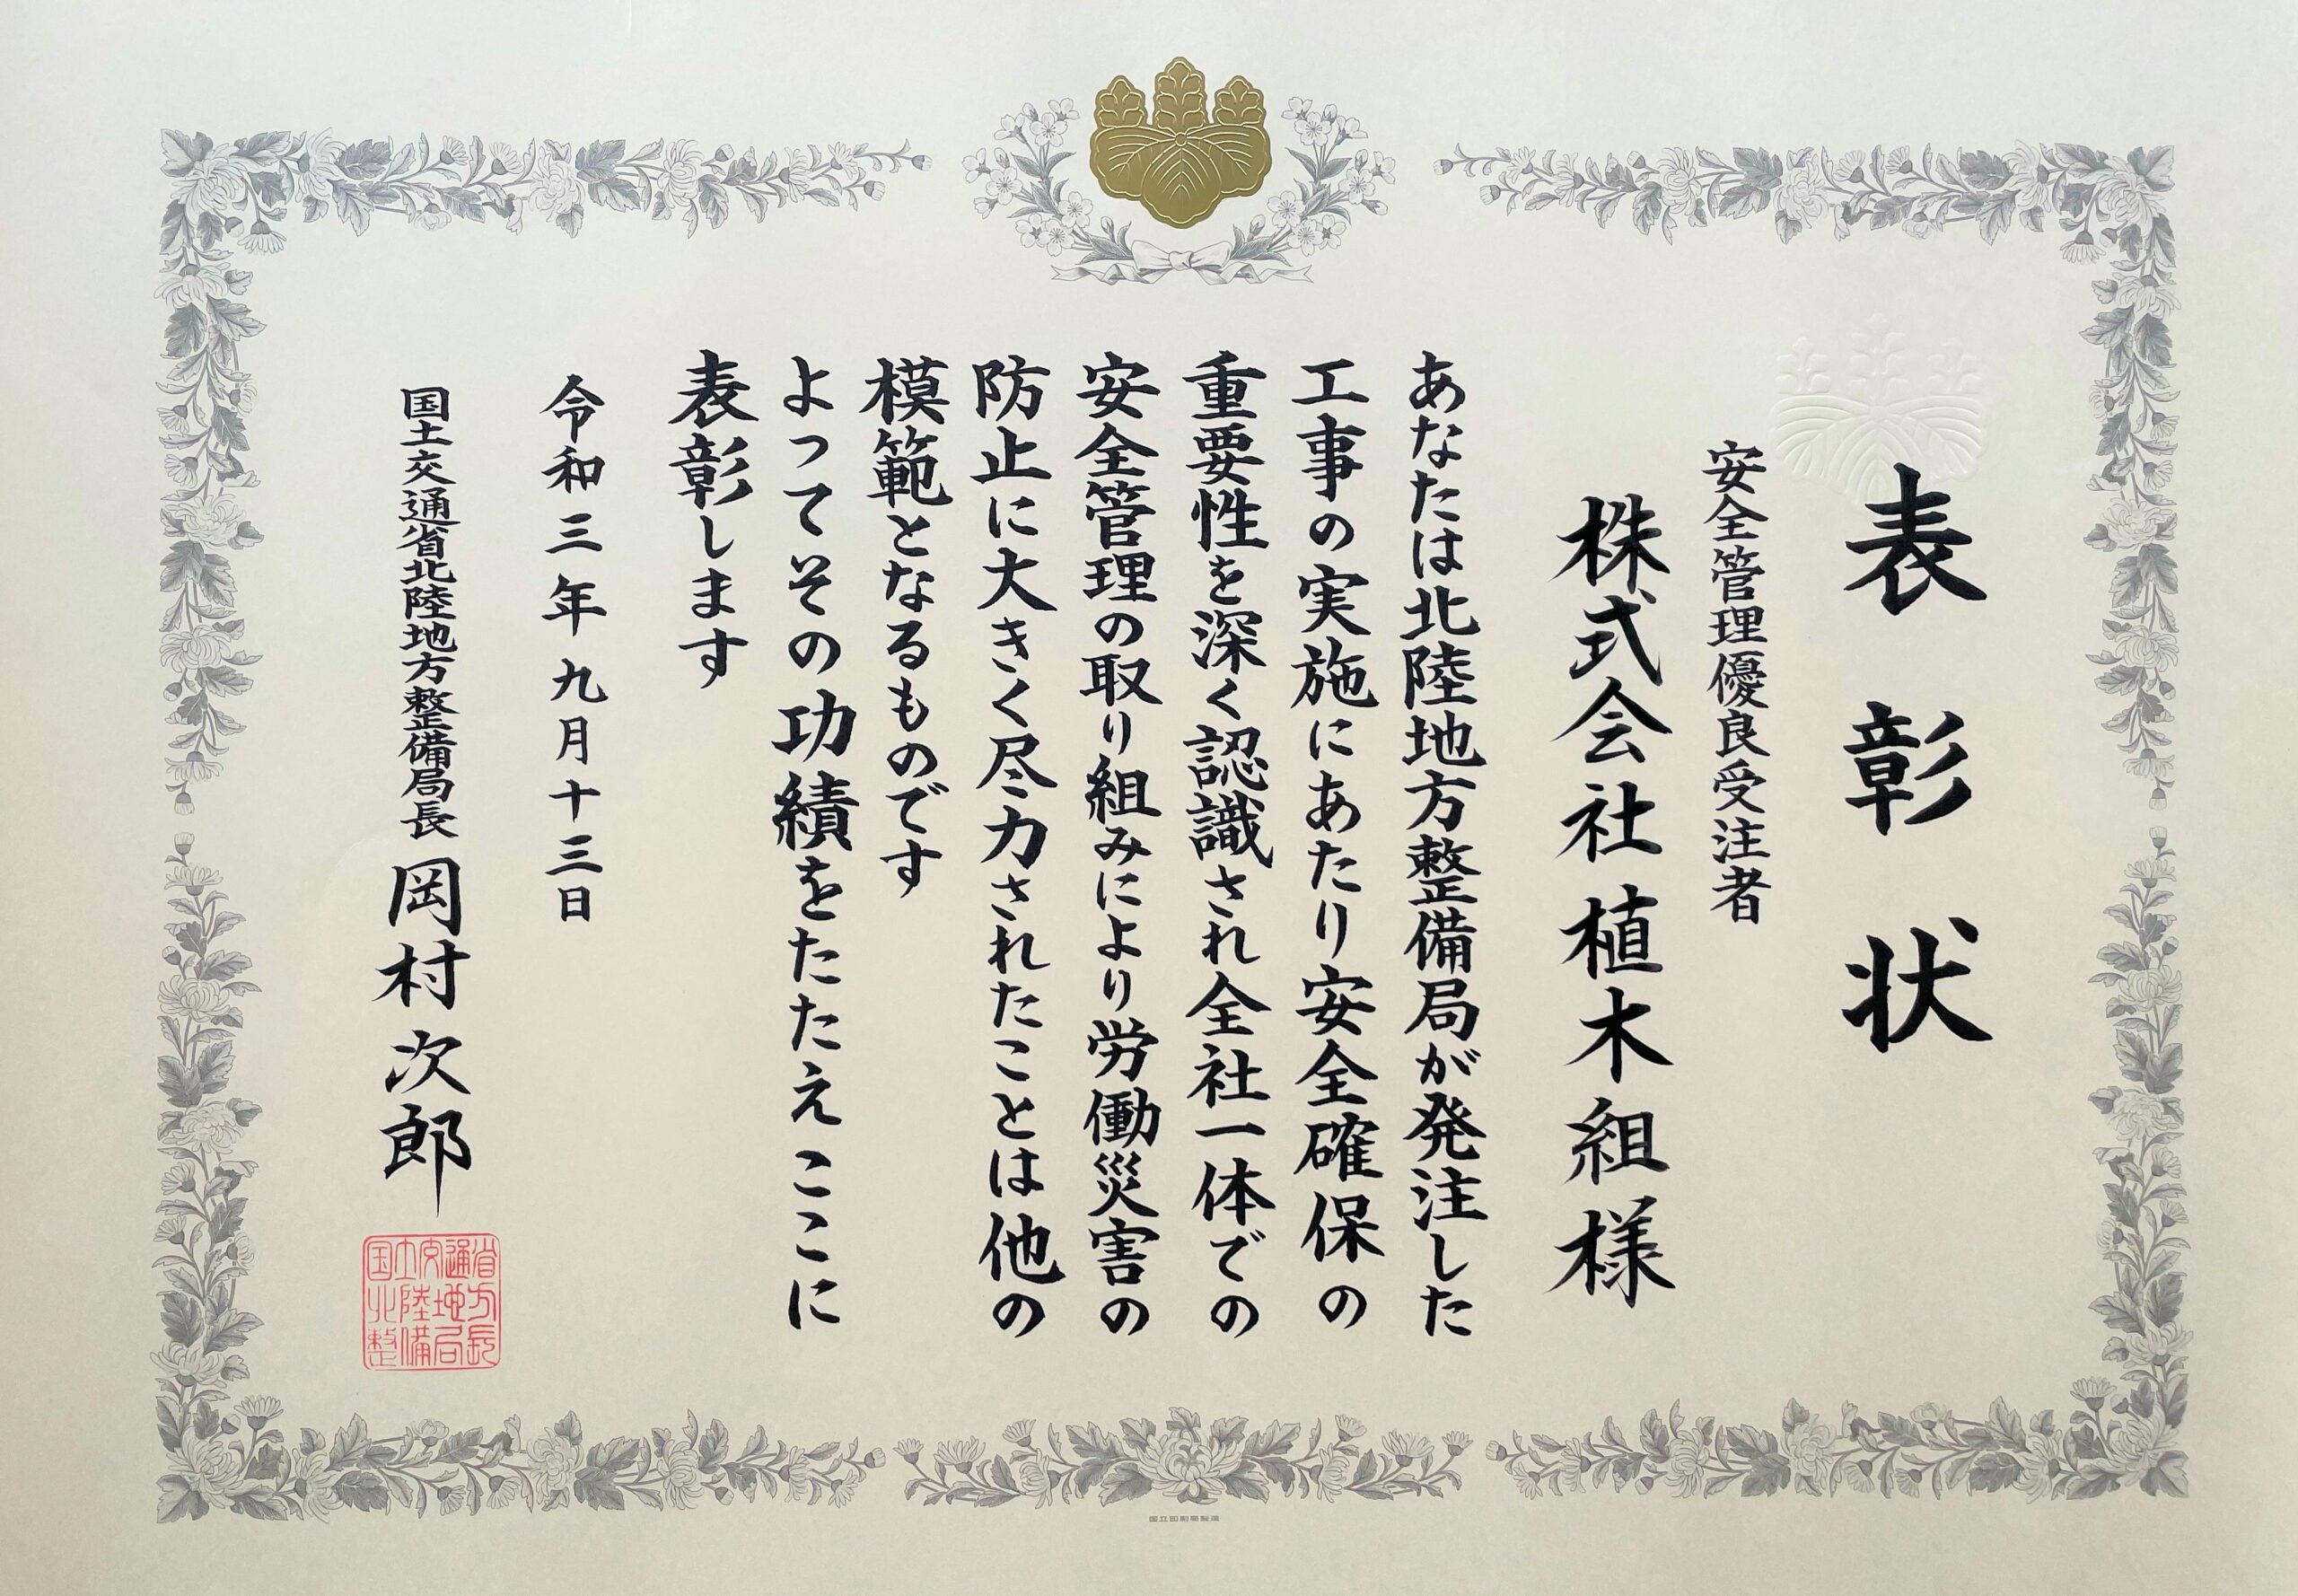 表彰状
安全管理優良受注者
株式会社植木組様
あなたは北陸地方整備局が発注した
工事の実施にあたり安全確保の
重要性を深く認識され全社一体での
安全管理の取り組みにより労働災害の
防止に大きく尽力されたことは他の
模範となるものです
よってその功績をたたえここに
表彰します
令和三年九月十三日
国土交通省北陸地方整備局長 岡村次郎
国土交通省
北陸地方
整備局長
国立印刷局製造